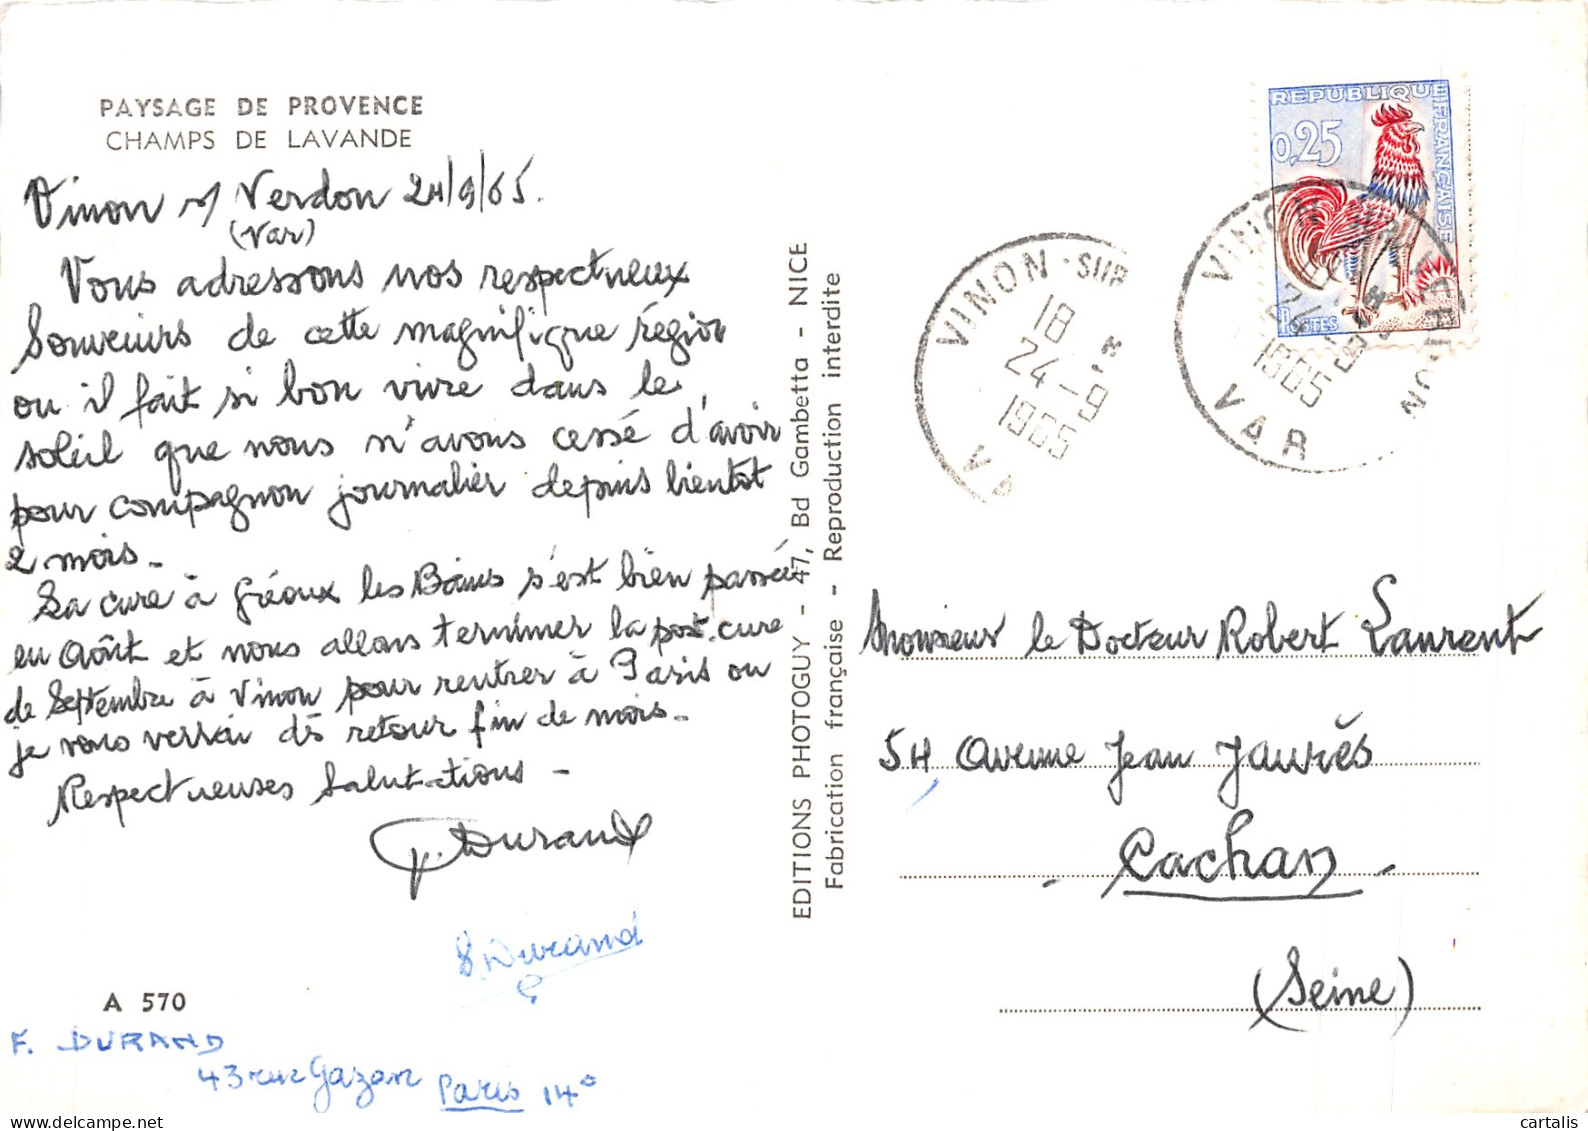 PAYSAGE DE PROVENCE
CHAMPS DE LAVANDE
Vinon s/ Verdon 24/9/65.
(Var)
Vous adressons nos respectueux
Souvenirs de cette magnifique région
ou il fait si bon vivre dans le
soleil que nous n'avons cessé d'avoir
pour compagnon journalier depuis bientot
2 mois.
La cure à Gréoux les Bains s'est bien passée
en Août et nous allons terminer la post.cure
de Septembre à Vinon pour rentrer à Paris ou
je vous verrai dès retour fin de mois.
Respectueuses Salutations -
Durand
S. Durand
A 570
F. DURAND
43 rue Gazan Paris 14°
EDITIONS PHOTOGUY - 47, Bd Gambetta - NICE
Fabrication française - Reproduction interdite
REPUBLIQUE FRANÇAISE
0,25
POSTES
VINON-SUR
18
24-9
1965
VA
VINON-SUR-VERDON
18
24-9
1965
VAR
Monsieur le Docteur Robert Laurent
54 Avenue Jean Jaurès
- Cachan -
(Seine)
cartalis